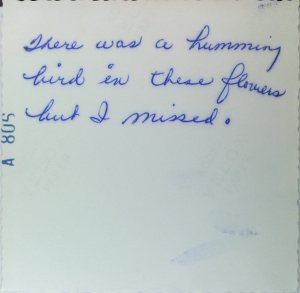 There was a humming
bird in these flowers
but I missed.
A 805